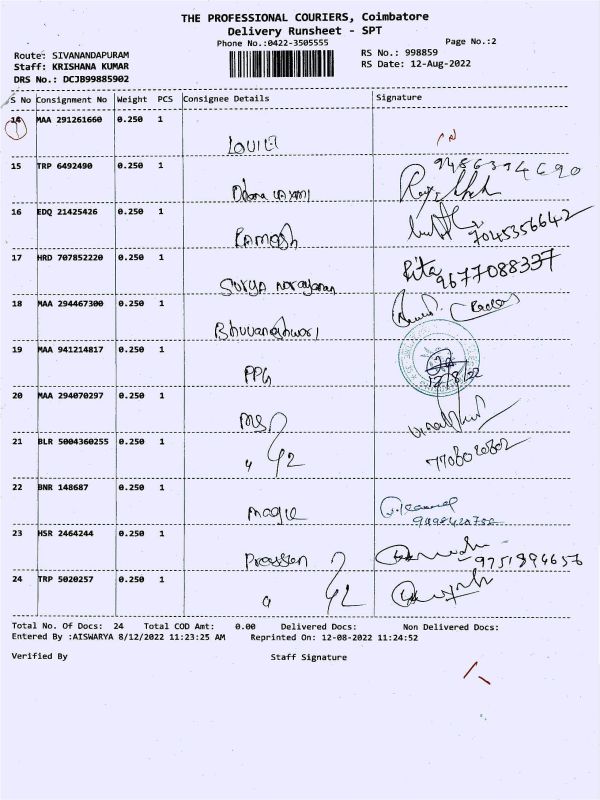 THE PROFESSIONAL COURIERS, Coimbatore
Delivery Runsheet - SPT
Phone No.:0422-3505555
Page No.:2
Route: SIVANANDAPURAM
RS No.: 998859
Staff: KRISHANA KUMAR
RS Date: 12-Aug-2022
DRS No.: DCJB99885902
S No Consignment No Weight PCS Consignee Details Signature
14 MAA 291261660 0.250 1
15 TRP 6492490 0.250 1
16 EDQ 21425426 0.250 1
Ramesh 7045356642
17 HRD 707852220 0.250 1
Rita 9677088337
Surya Narayanan
18 MAA 294467300 0.250 1
Bhuvaneshwari
19 MAA 941214817 0.250 1
PPG 12/8/22
20 MAA 294070297 0.250 1
MS
21 BLR 5004360255 0.250 1
22 BNR 148687 0.250 1
Magic
23 HSR 2464244 0.250 1
9751894656
24 TRP 5020257 0.250 1
Total No. Of Docs: 24 Total COD Amt: 0.00 Delivered Docs: Non Delivered Docs:
Entered By :AISWARYA 8/12/2022 11:23:25 AM Reprinted On: 12-08-2022 11:24:52
Verified By Staff Signature